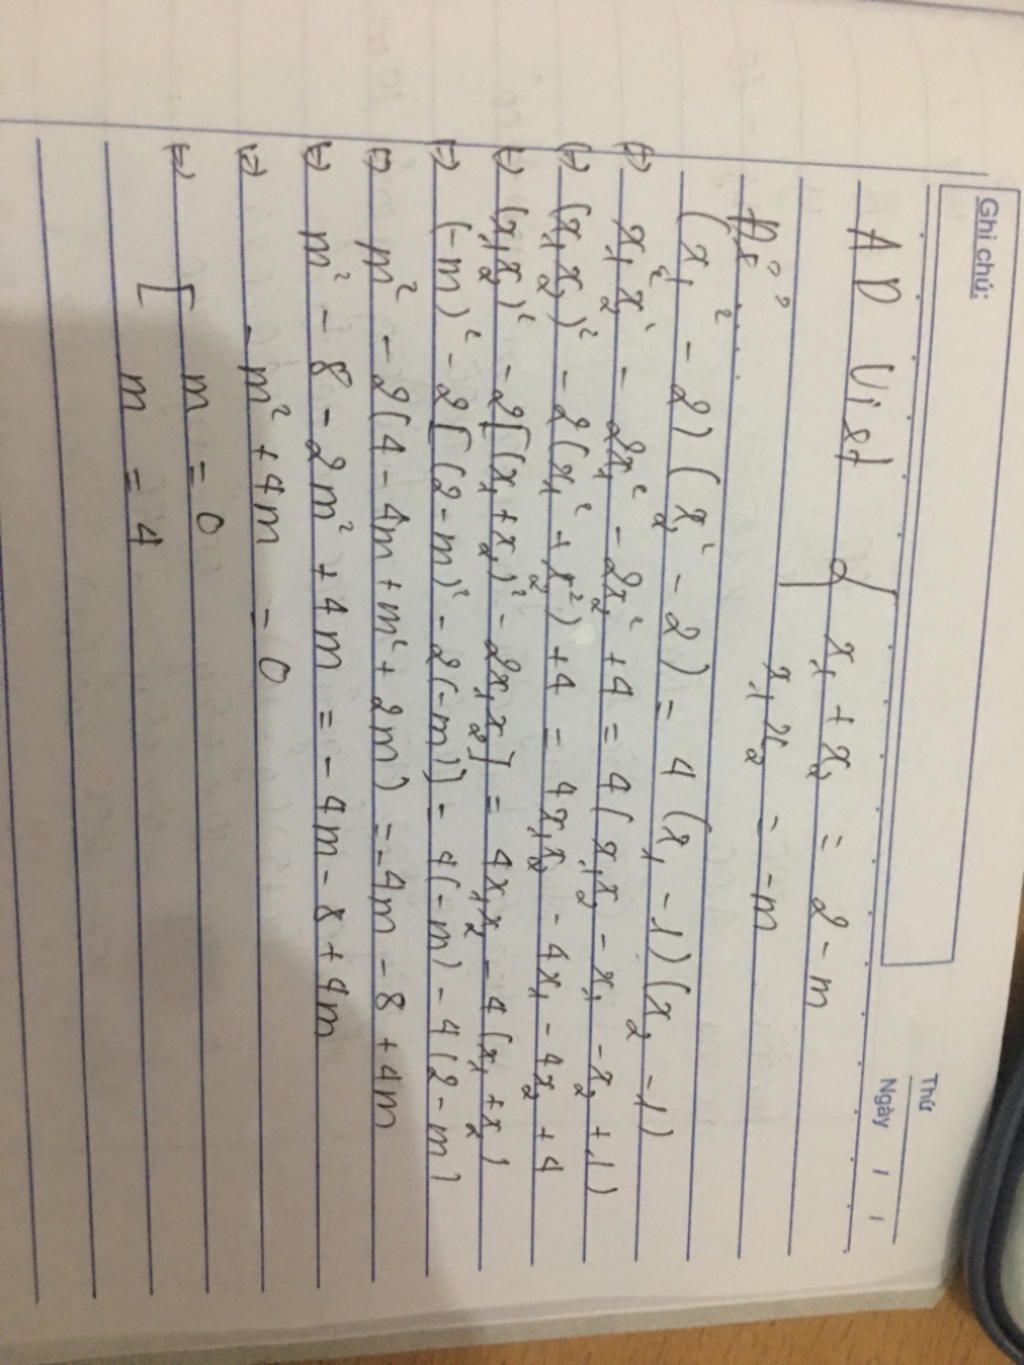 Ghi chú:
Thứ
Ngày / /
AD Viet { x₁ + x₂ = 2 - m
x₁x₂ = -m
(x₁² - 2)(x₂² - 2) = 4(x₁ - 1)(x₂ - 1)
(=) x₁²x₂² - 2x₁² - 2x₂² + 4 = 4(x₁x₂ - x₁ - x₂ + 1)
(=) (x₁x₂)² - 2(x₁² + x₂²) + 4 = 4x₁x₂ - 4x₁ - 4x₂ + 4
(=) (x₁x₂)² - 2[(x₁ + x₂)² - 2x₁x₂] = 4x₁x₂ - 4(x₁ + x₂)
(=) (-m)² - 2[(2 - m)² - 2(-m)] = 4(-m) - 4(2 - m)
(=) m² - 2(4 - 4m + m² + 2m) = -4m - 8 + 4m
(=) m² - 8 - 2m² + 4m = -4m - 8 + 4m
(=) -m² + 4m = 0
(=) [ m = 0
m = 4